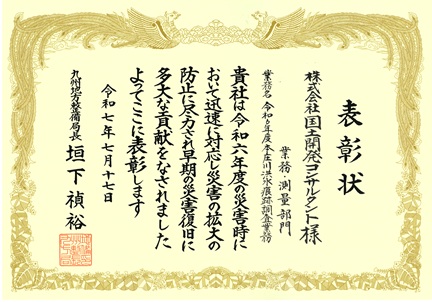 表彰状
株式会社国土開発コンサルタント様
業務・測量部門
業務名 令和6年度本庄川洪水痕跡調査業務
貴社は令和六年度の災害時に
おいて迅速に対応し災害の拡大の
防止に尽力され早期の災害復旧に
多大な貢献をなされました
よってここに表彰します
令和七年七月十七日
九州地方整備局長
垣下禎裕